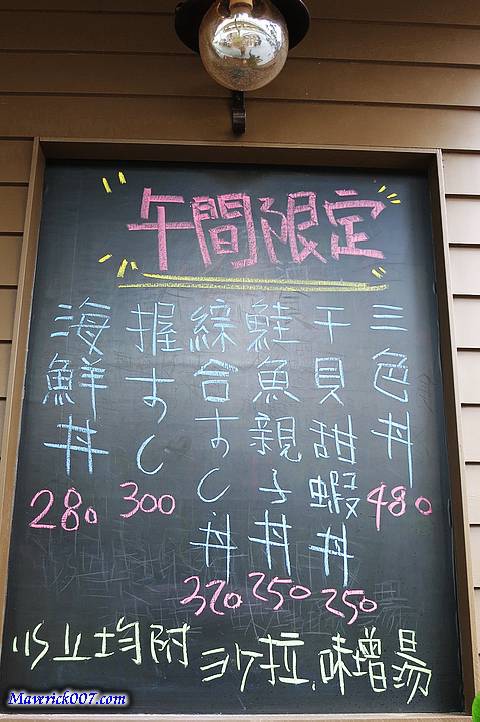 午間限定
三色丼
480
干貝甜蝦丼
250
鮭魚親子丼
250
綜合すし丼
320
握すし
300
海鮮丼
280
以上均附
沙拉、味增湯
Maverick007.com